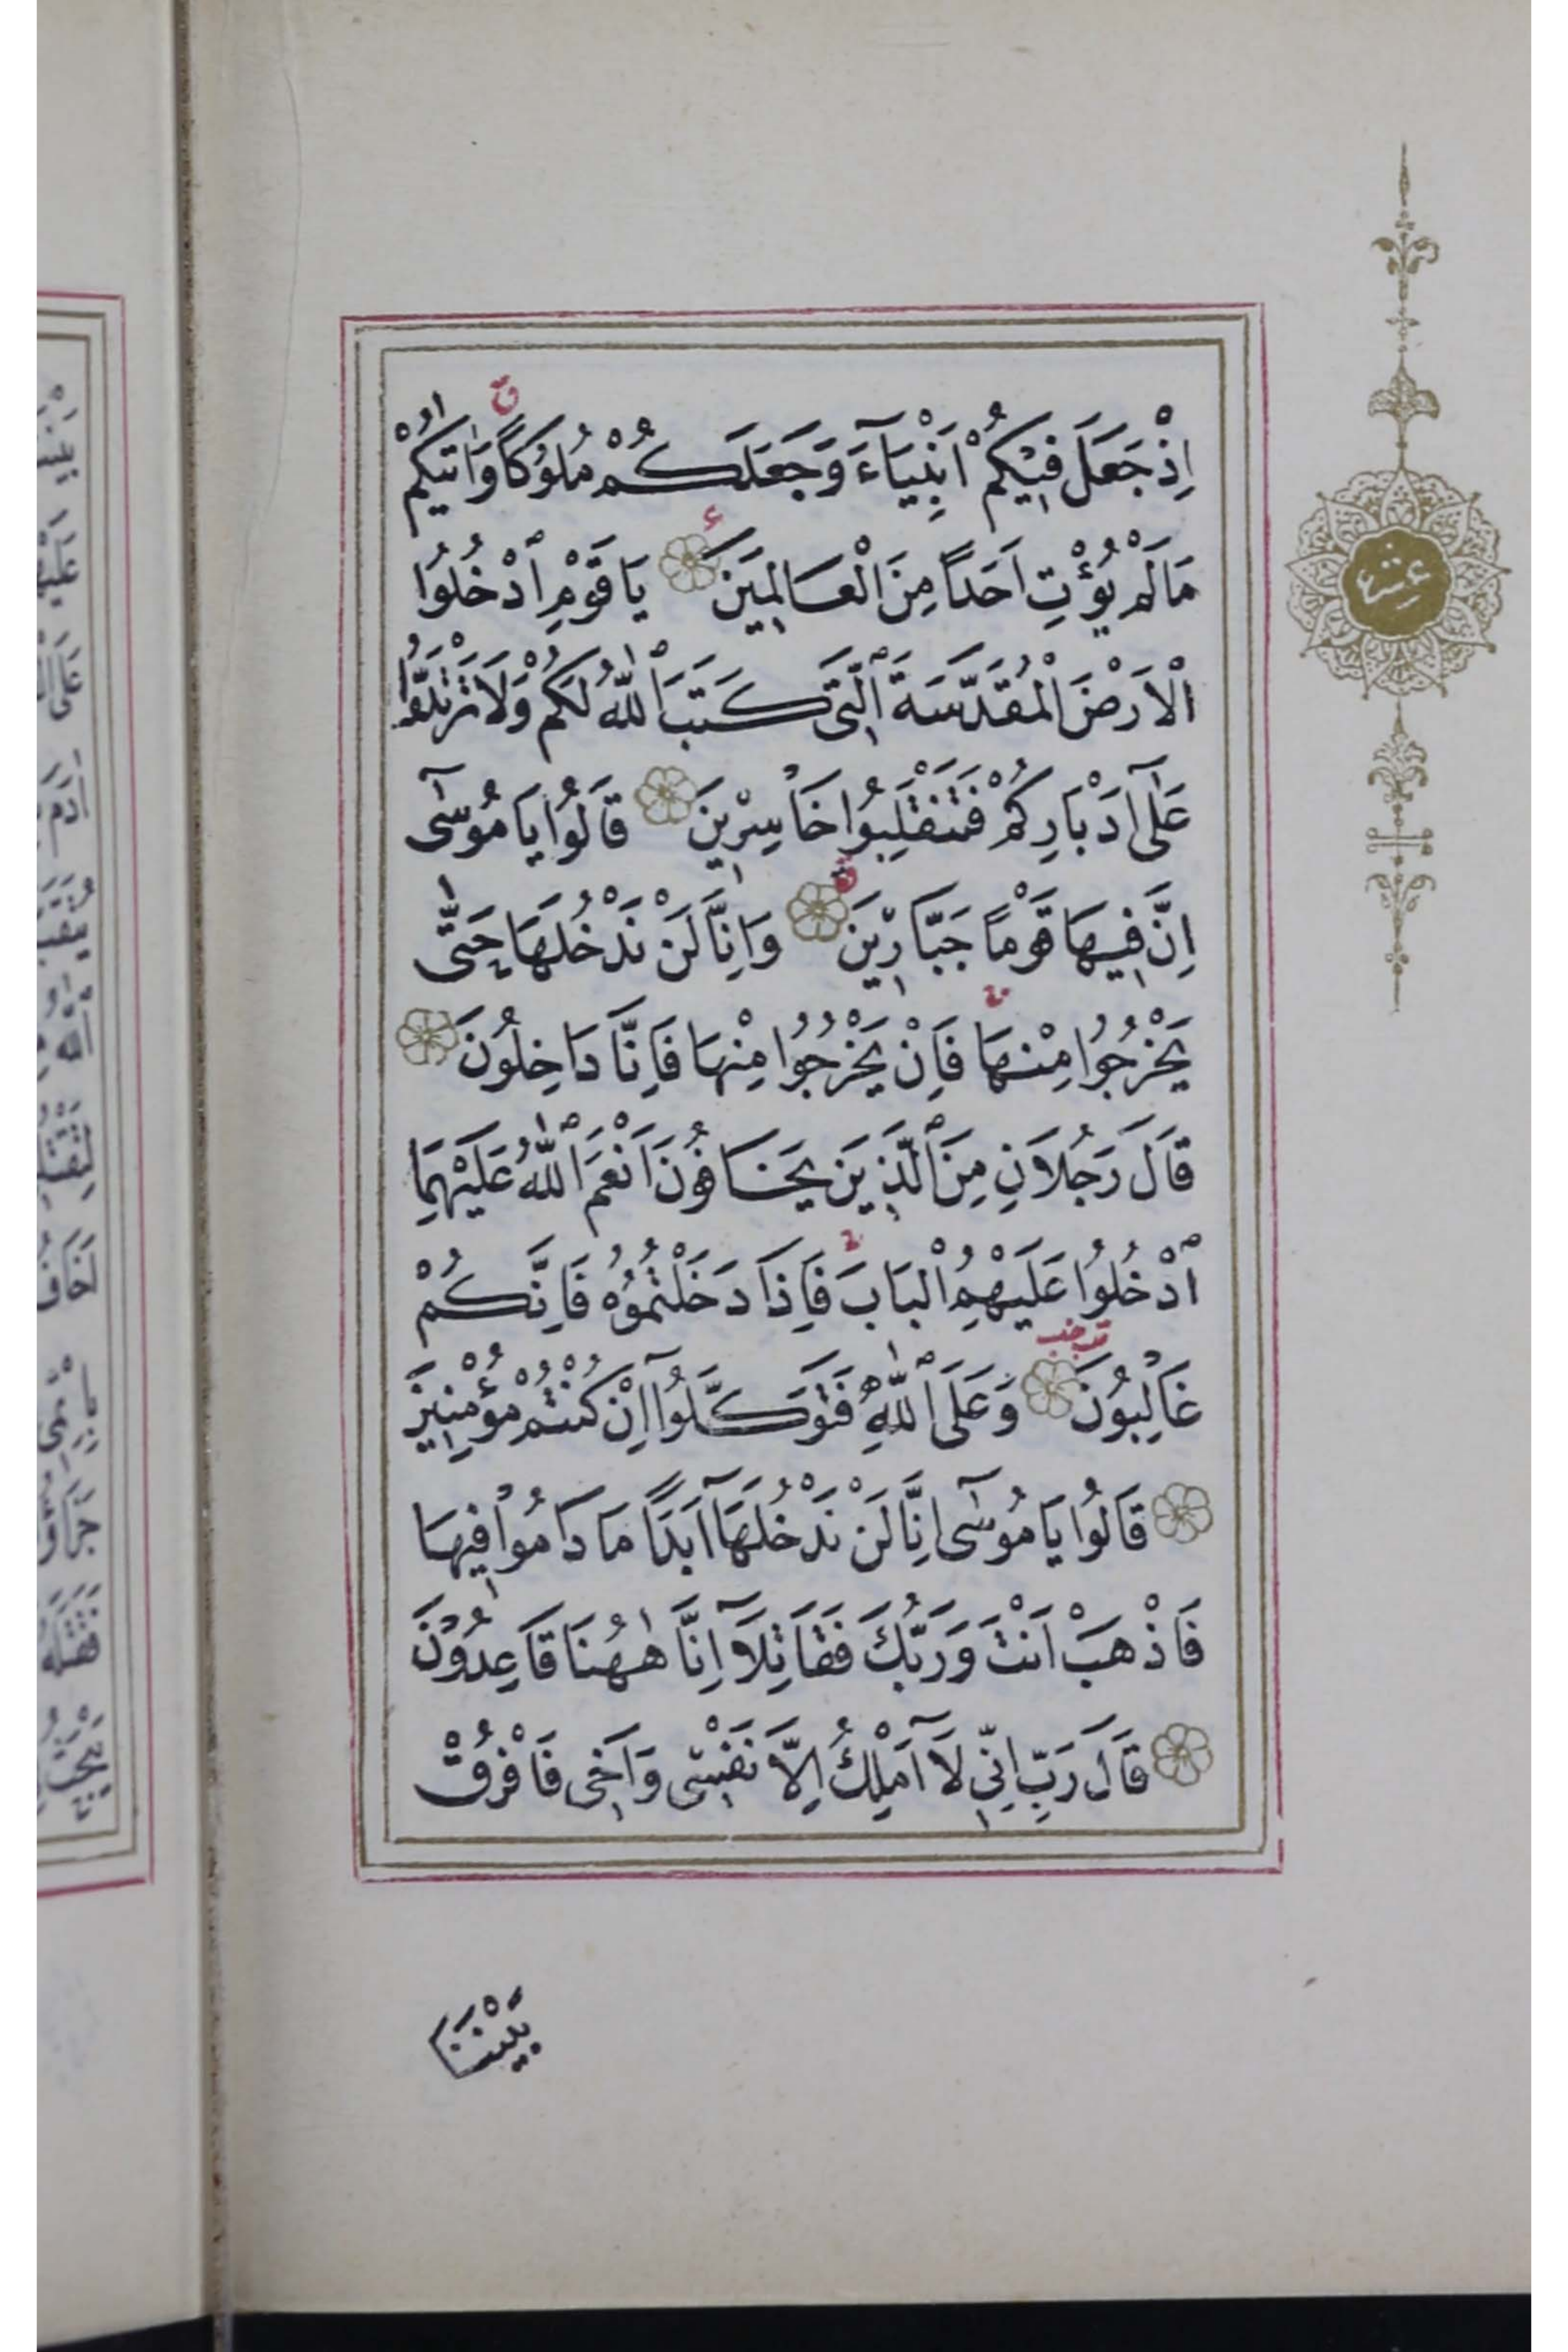 اِذْ جَعَلَ فِيكُمْ اَنْبِيَآءَ وَجَعَلَكُمْ مُلُوكاً وَاٰتٰيكُمْ
مَا لَمْ يُؤْتِ اَحَداً مِنَ الْعَالَمِينَ يَا قَوْمِ ادْخُلُوا
الْاَرْضَ الْمُقَدَّسَةَ الَّتِى كَتَبَ اللّٰهُ لَكُمْ وَلَا تَرْتَدُّوا
عَلٰٓى اَدْبَارِكُمْ فَتَنْقَلِبُوا خَاسِرِينَ قَالُوا يَا مُوسٰٓى
اِنَّ فِيهَا قَوْماً جَبَّارِينَ وَاِنَّا لَنْ نَدْخُلَهَا حَتّٰى
يَخْرُجُوا مِنْهَا فَاِنْ يَخْرُجُوا مِنْهَا فَاِنَّا دَاخِلُونَ
قَالَ رَجُلَانِ مِنَ الَّذِينَ يَخَافُونَ اَنْعَمَ اللّٰهُ عَلَيْهِمَا
ادْخُلُوا عَلَيْهِمُ الْبَابَ فَاِذَا دَخَلْتُمُوهُ فَاِنَّكُمْ
غَالِبُونَ وَعَلَى اللّٰهِ فَتَوَكَّلُوٓا اِنْ كُنْتُمْ مُؤْمِنِينَ
قَالُوا يَا مُوسٰٓى اِنَّا لَنْ نَدْخُلَهَآ اَبَداً مَا دَامُوا فِيهَا
فَاذْهَبْ اَنْتَ وَرَبُّكَ فَقَاتِلَآ اِنَّا هٰهُنَا قَاعِدُونَ
قَالَ رَبِّ اِنِّى لَآ اَمْلِكُ اِلَّا نَفْسِى وَاَخِى فَافْرُقْ
بَيْنَنَا